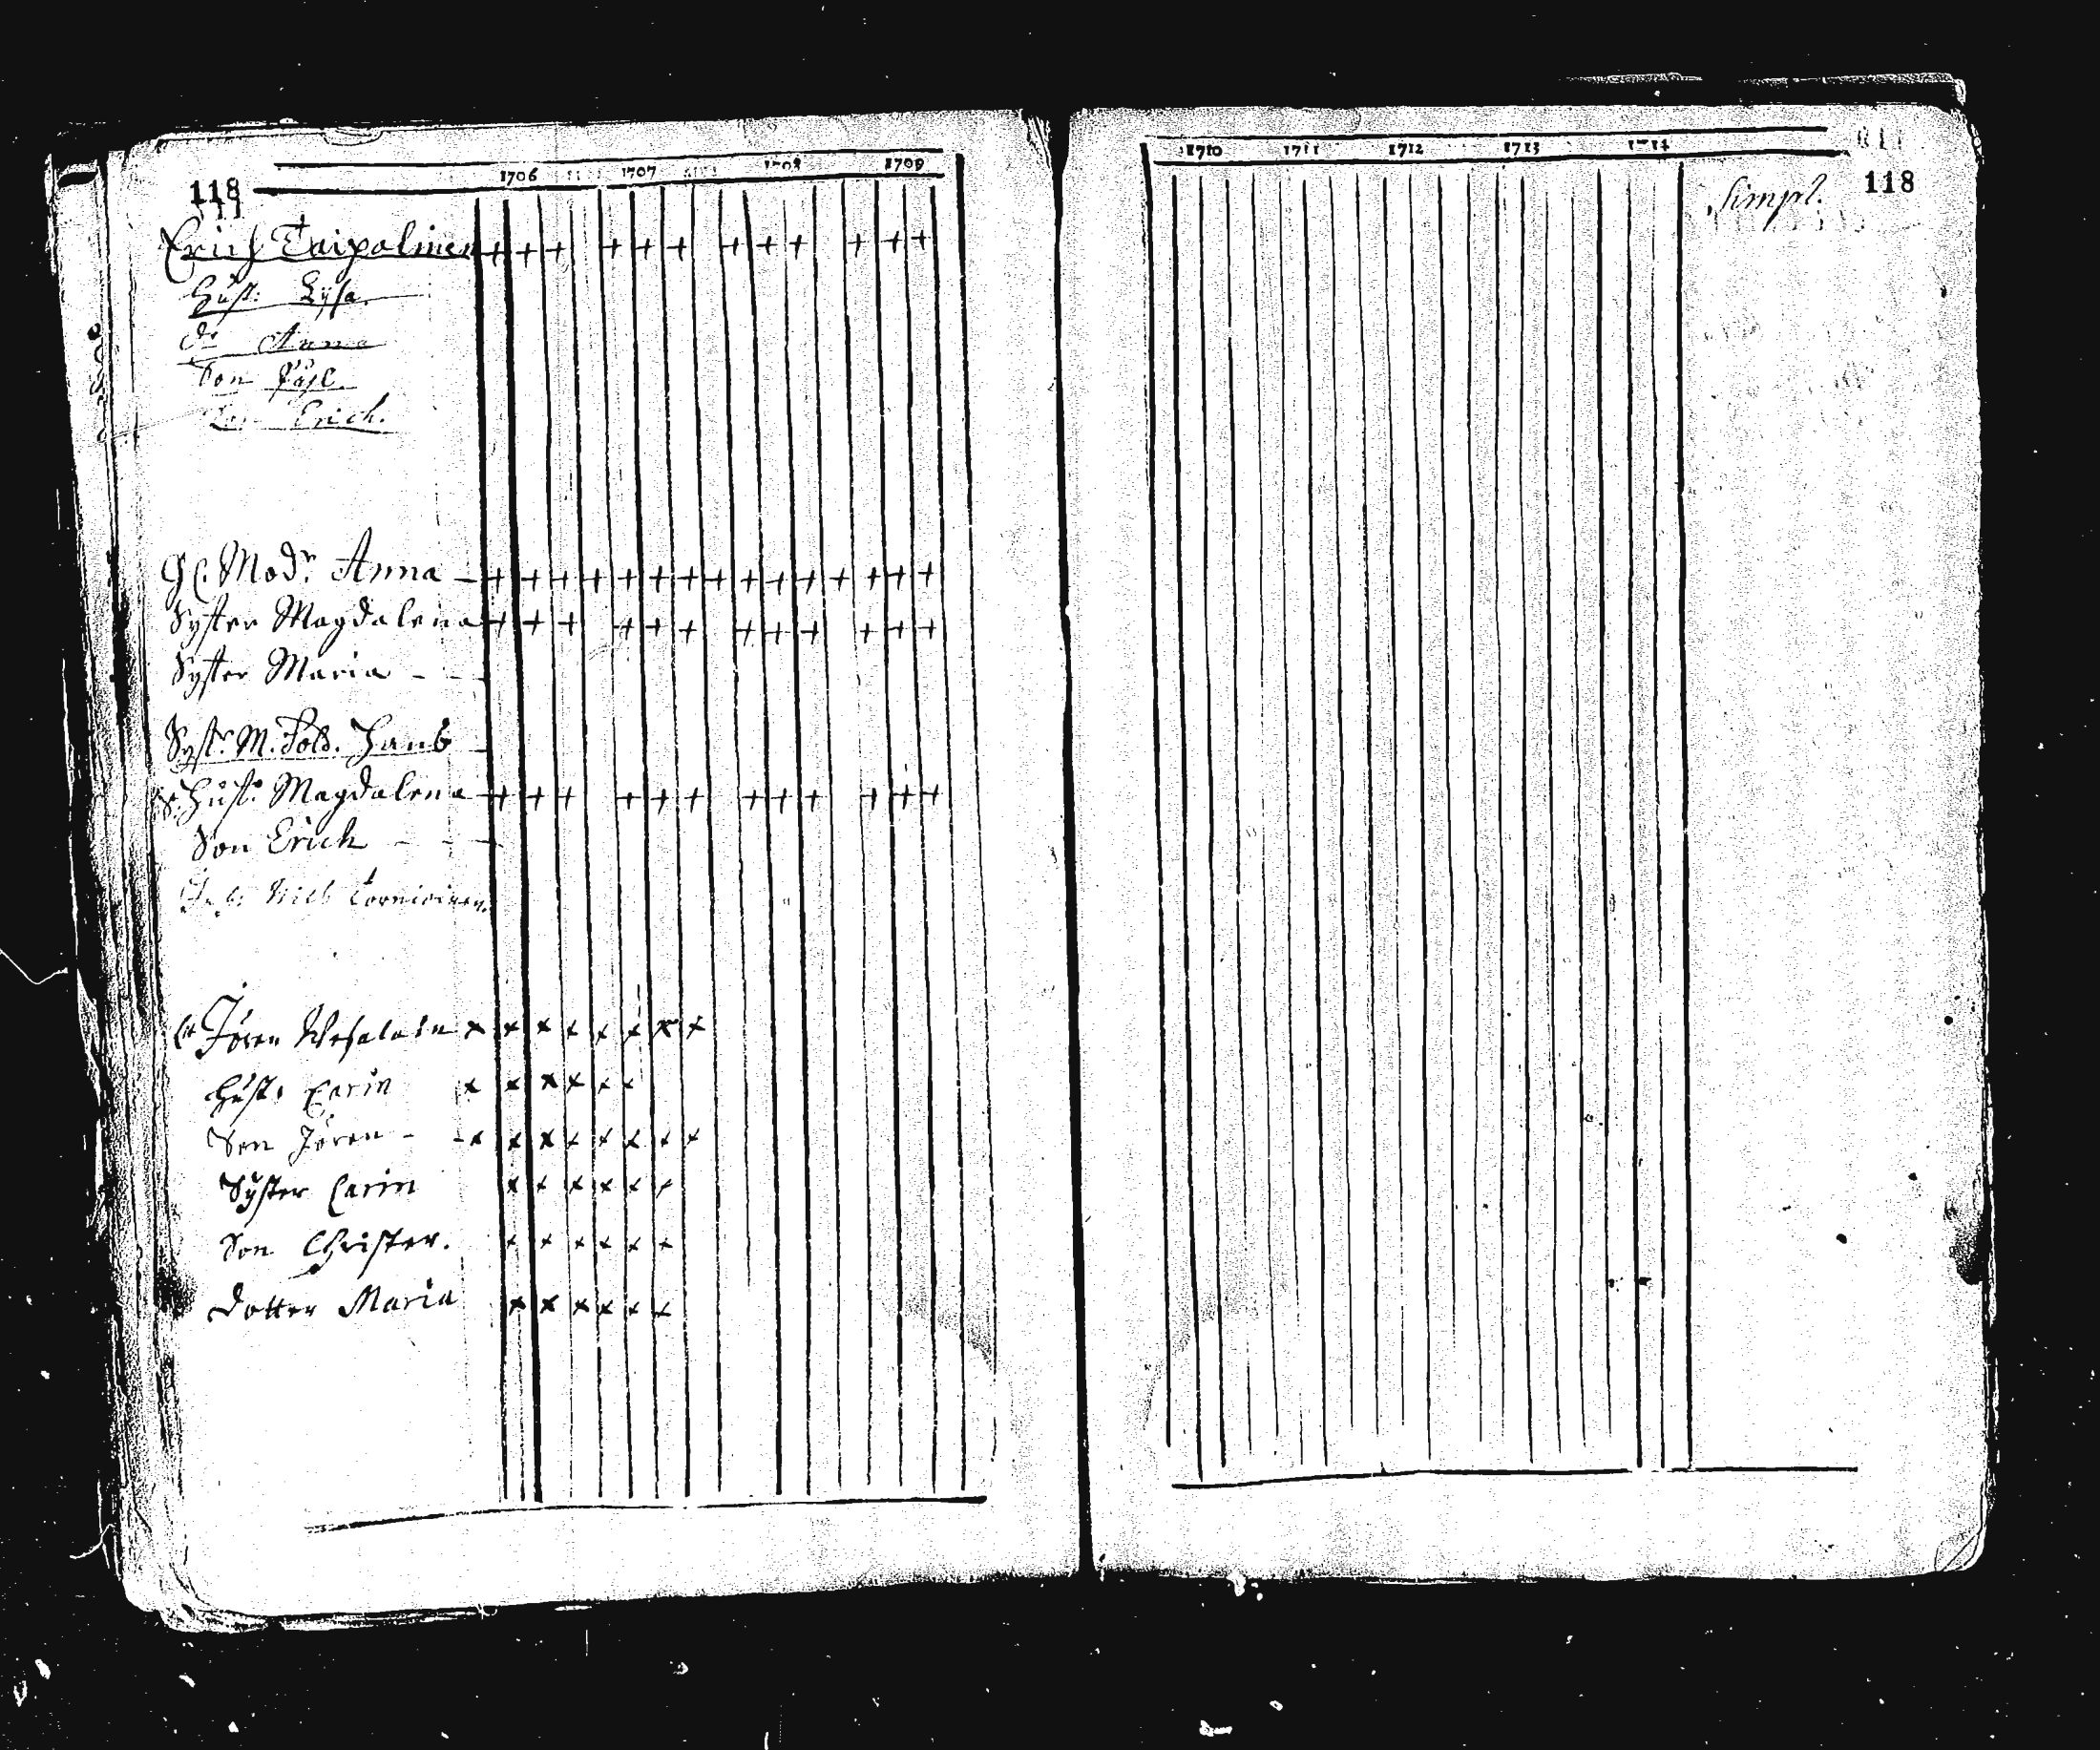 118
1706 1707 1708 1709
Erich Taipalinen
Hust: Lysa.
dr Anna
Son Påhl
Son Erich.
Gl. Modr Anna
Syster Magdalena
Syster Maria
Systr M. Sold. Hans
S. Hust: Magdalena
Son Erich
Nils Tornioinen.
Jören
Hust: Carin
Son Jören
Syster Carin
Son Christer.
Dotter Maria
1710 1711 1712 1713 1714
118
Simpl.